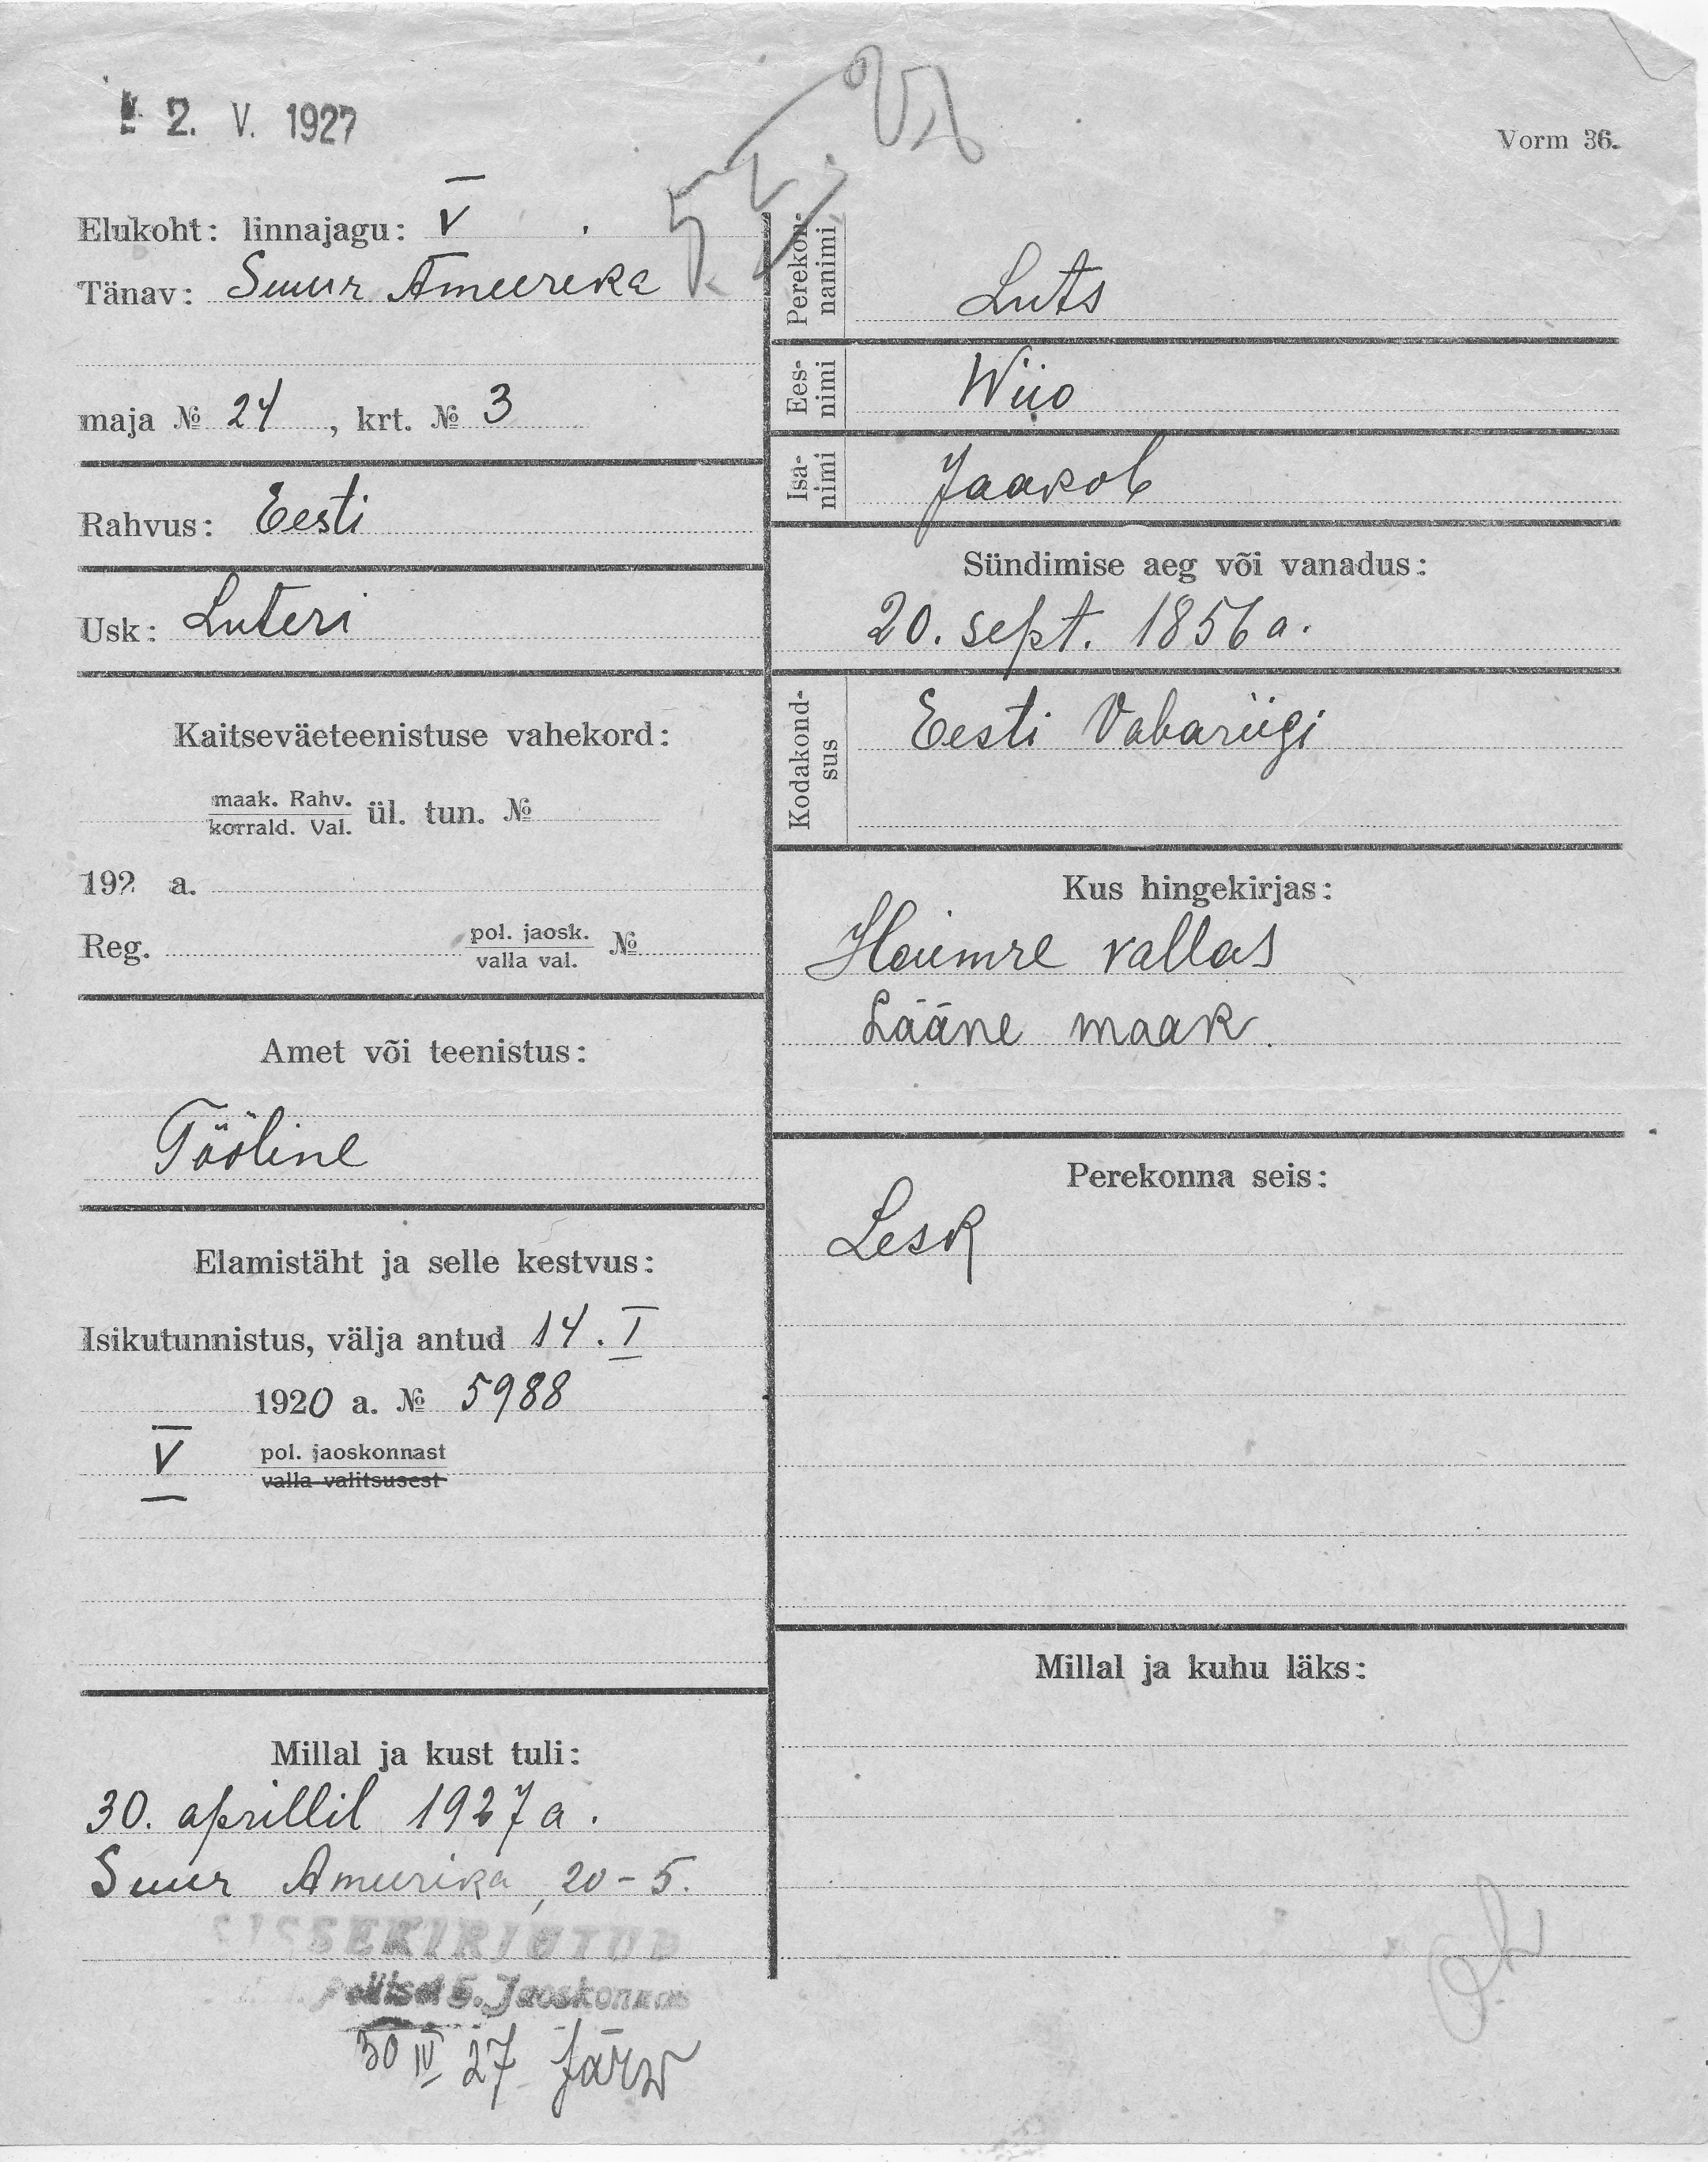 2. V. 1927
Vorm 36.
Elukoht: linnajagu: V
Tänav: Suur Ameerika
maja № 24, krt. № 3
Rahvus: Eesti
Usk: Luteri
Kaitseväeteenistuse vahekord:
maak. Rahv.
korrald. Val. ül. tun. №
192 a.
Reg. pol. jaosk. №
valla val.
Amet või teenistus:
Tööline
Elamistäht ja selle kestvus:
Isikutunnistus, välja antud 14. I
1920 a. № 5988
V pol. jaoskonnast
valla valitsusest
Millal ja kust tuli:
30. aprillil 1927 a.
Suur Ameerika, 20-5.
SISSEKIRJUTUD
Politsei 5. Jaoskonnas
30 IV 27 Järw
Perekon-
nanimi
Luts
Ees-
nimi
Wiio
Isa-
nimi
Jaakob
Sündimise aeg või vanadus:
20. sept. 1856 a.
Kodakond-
sus
Eesti Vabariigi
Kus hingekirjas:
Haimre vallas
Lääne maak.
Perekonna seis:
Lesk
Millal ja kuhu läks: